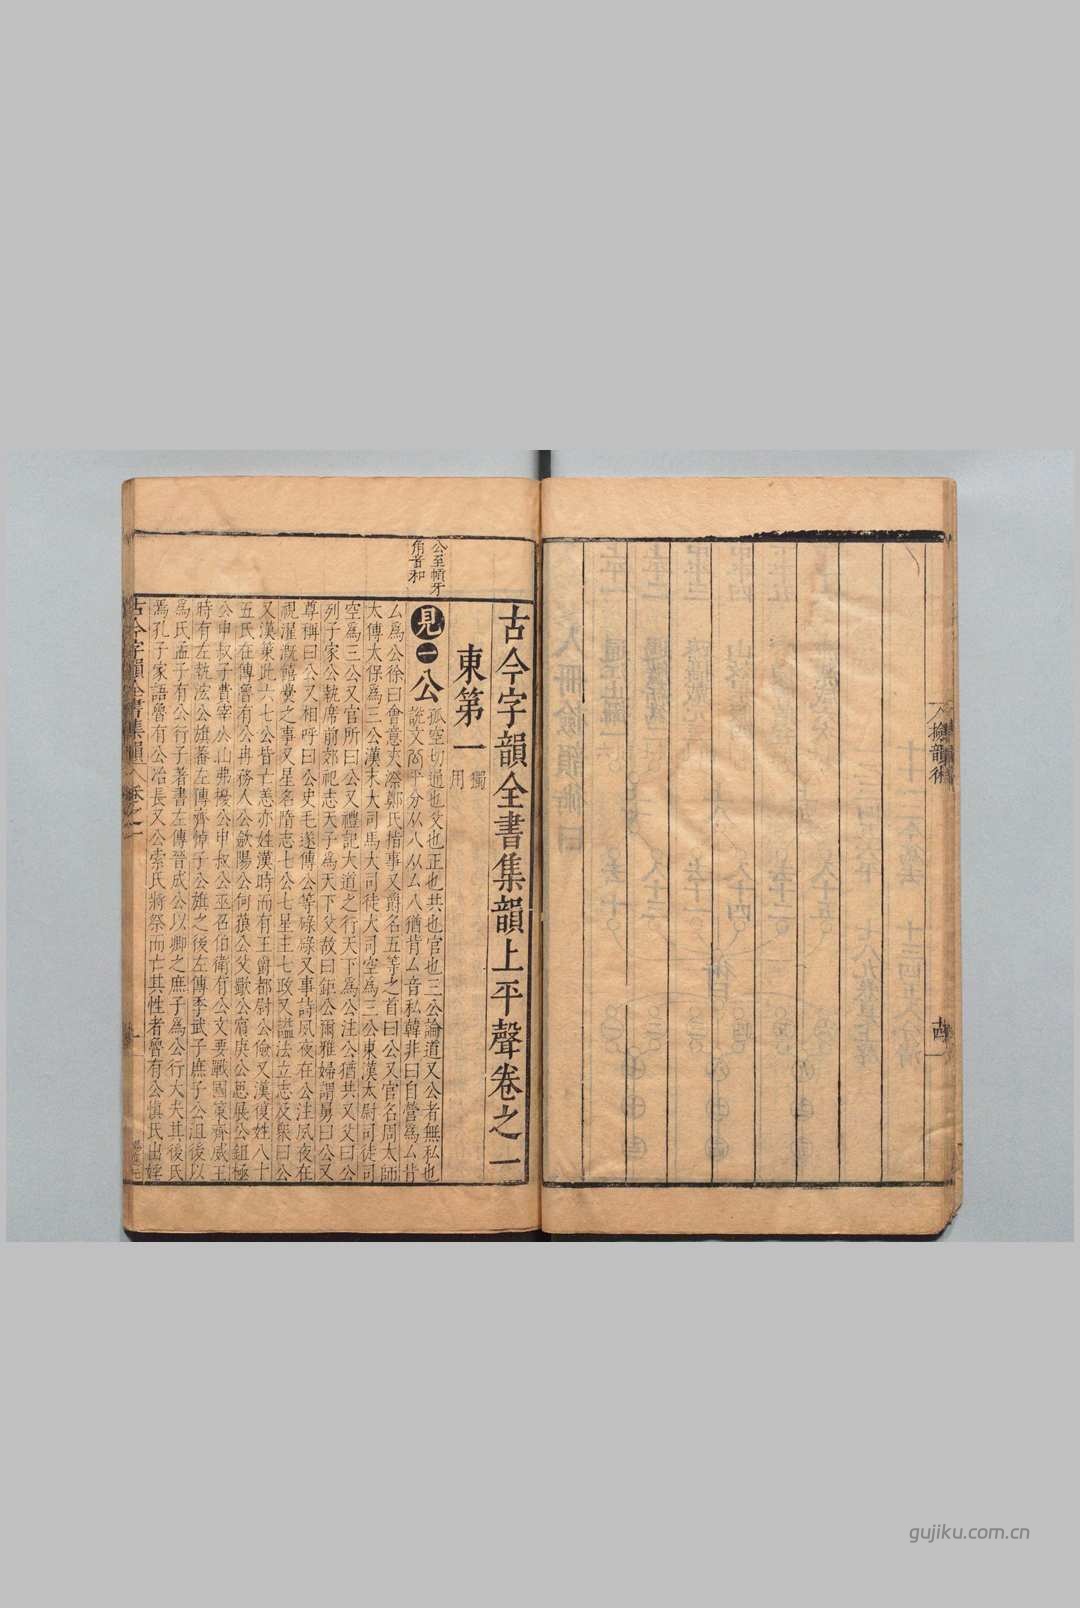 人撿韻術
古今字韻全書集韻上平聲卷之一
東第一
獨用
公至幊牙
角音和
見一公
孤空切通也父也正也共也官也三公論道又公者無私也
說文公平分从八从厶八猶背厶音私韓非曰自營爲厶背
厶爲公徐曰會意夾漈鄭氏指事又爵名五等之首曰公又官名周太師
太傅太保爲三公漢末大司馬大司徒大司空爲三公東漢太尉司徒司
空爲三公又官所曰公又禮記大道之行天下爲公注公猶共又父曰公
列子家公執席前郊祀志天子爲天下父故曰鉅公爾雅婦謂舅曰公又
尊稱曰公又相呼曰公史毛遂傳公等碌碌又事詩夙夜在公注夙夜在
視濯溉饎爨之事又星名隋志七公七星主七政又謚法立志及衆曰公
又漢策此六七公皆亡恙亦姓漢時而有王爵都尉公儉又漢複姓八十
五氏在傳魯有公冉務人公歛陽公何藐公父歜公賔庚公思展公鉏極
公申叔子費宰公山弗擾公申叔公巫召伯衛有公文要戰國策齊威王
時有左執法公旗蕃左傳齊悼子公旗之後左傳季武子庶子公沮後以
爲氏孟子有公行子著書左傳晉成公以卿之庶子爲公行大夫其後氏
焉孔子家語魯有公冶長又公索氏將祭而亡其牲者魯有公愼氏出婬
古今字韻全書集韻
gujiku.com.cn